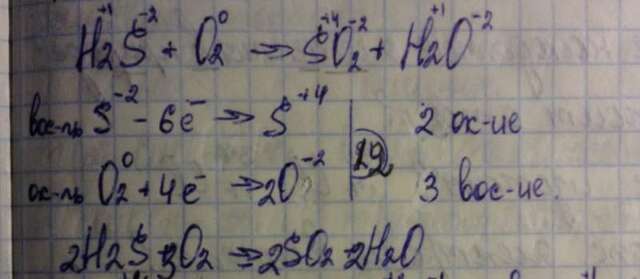 H₂⁺¹S⁻² + O₂⁰ → S⁺⁴O₂⁻² + H₂⁺¹O⁻²
вос-ль S⁻² - 6e⁻ → S⁺⁴ | 2 ок-ие
12
ок-ль O₂⁰ + 4e⁻ → 2O⁻² | 3 вос-ие.
2H₂S 3O₂ = 2SO₂ 2H₂O